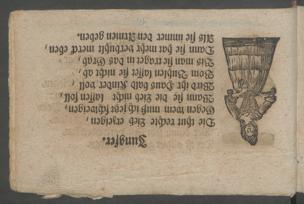 Jungfer.
Die thut rechte Lieb erzeigen,
Gegen dem ich muß jetzt schweigen,
Wann sie die Lieb nicht lassen soll
Wird ihr bald das Hauß Kinder voll
Vom Buhlen lasset sie nicht ab
man sie tragen in das Grab,
Dann sie hat mehr verbracht merck eben,
Als sie immer den Armen geben.